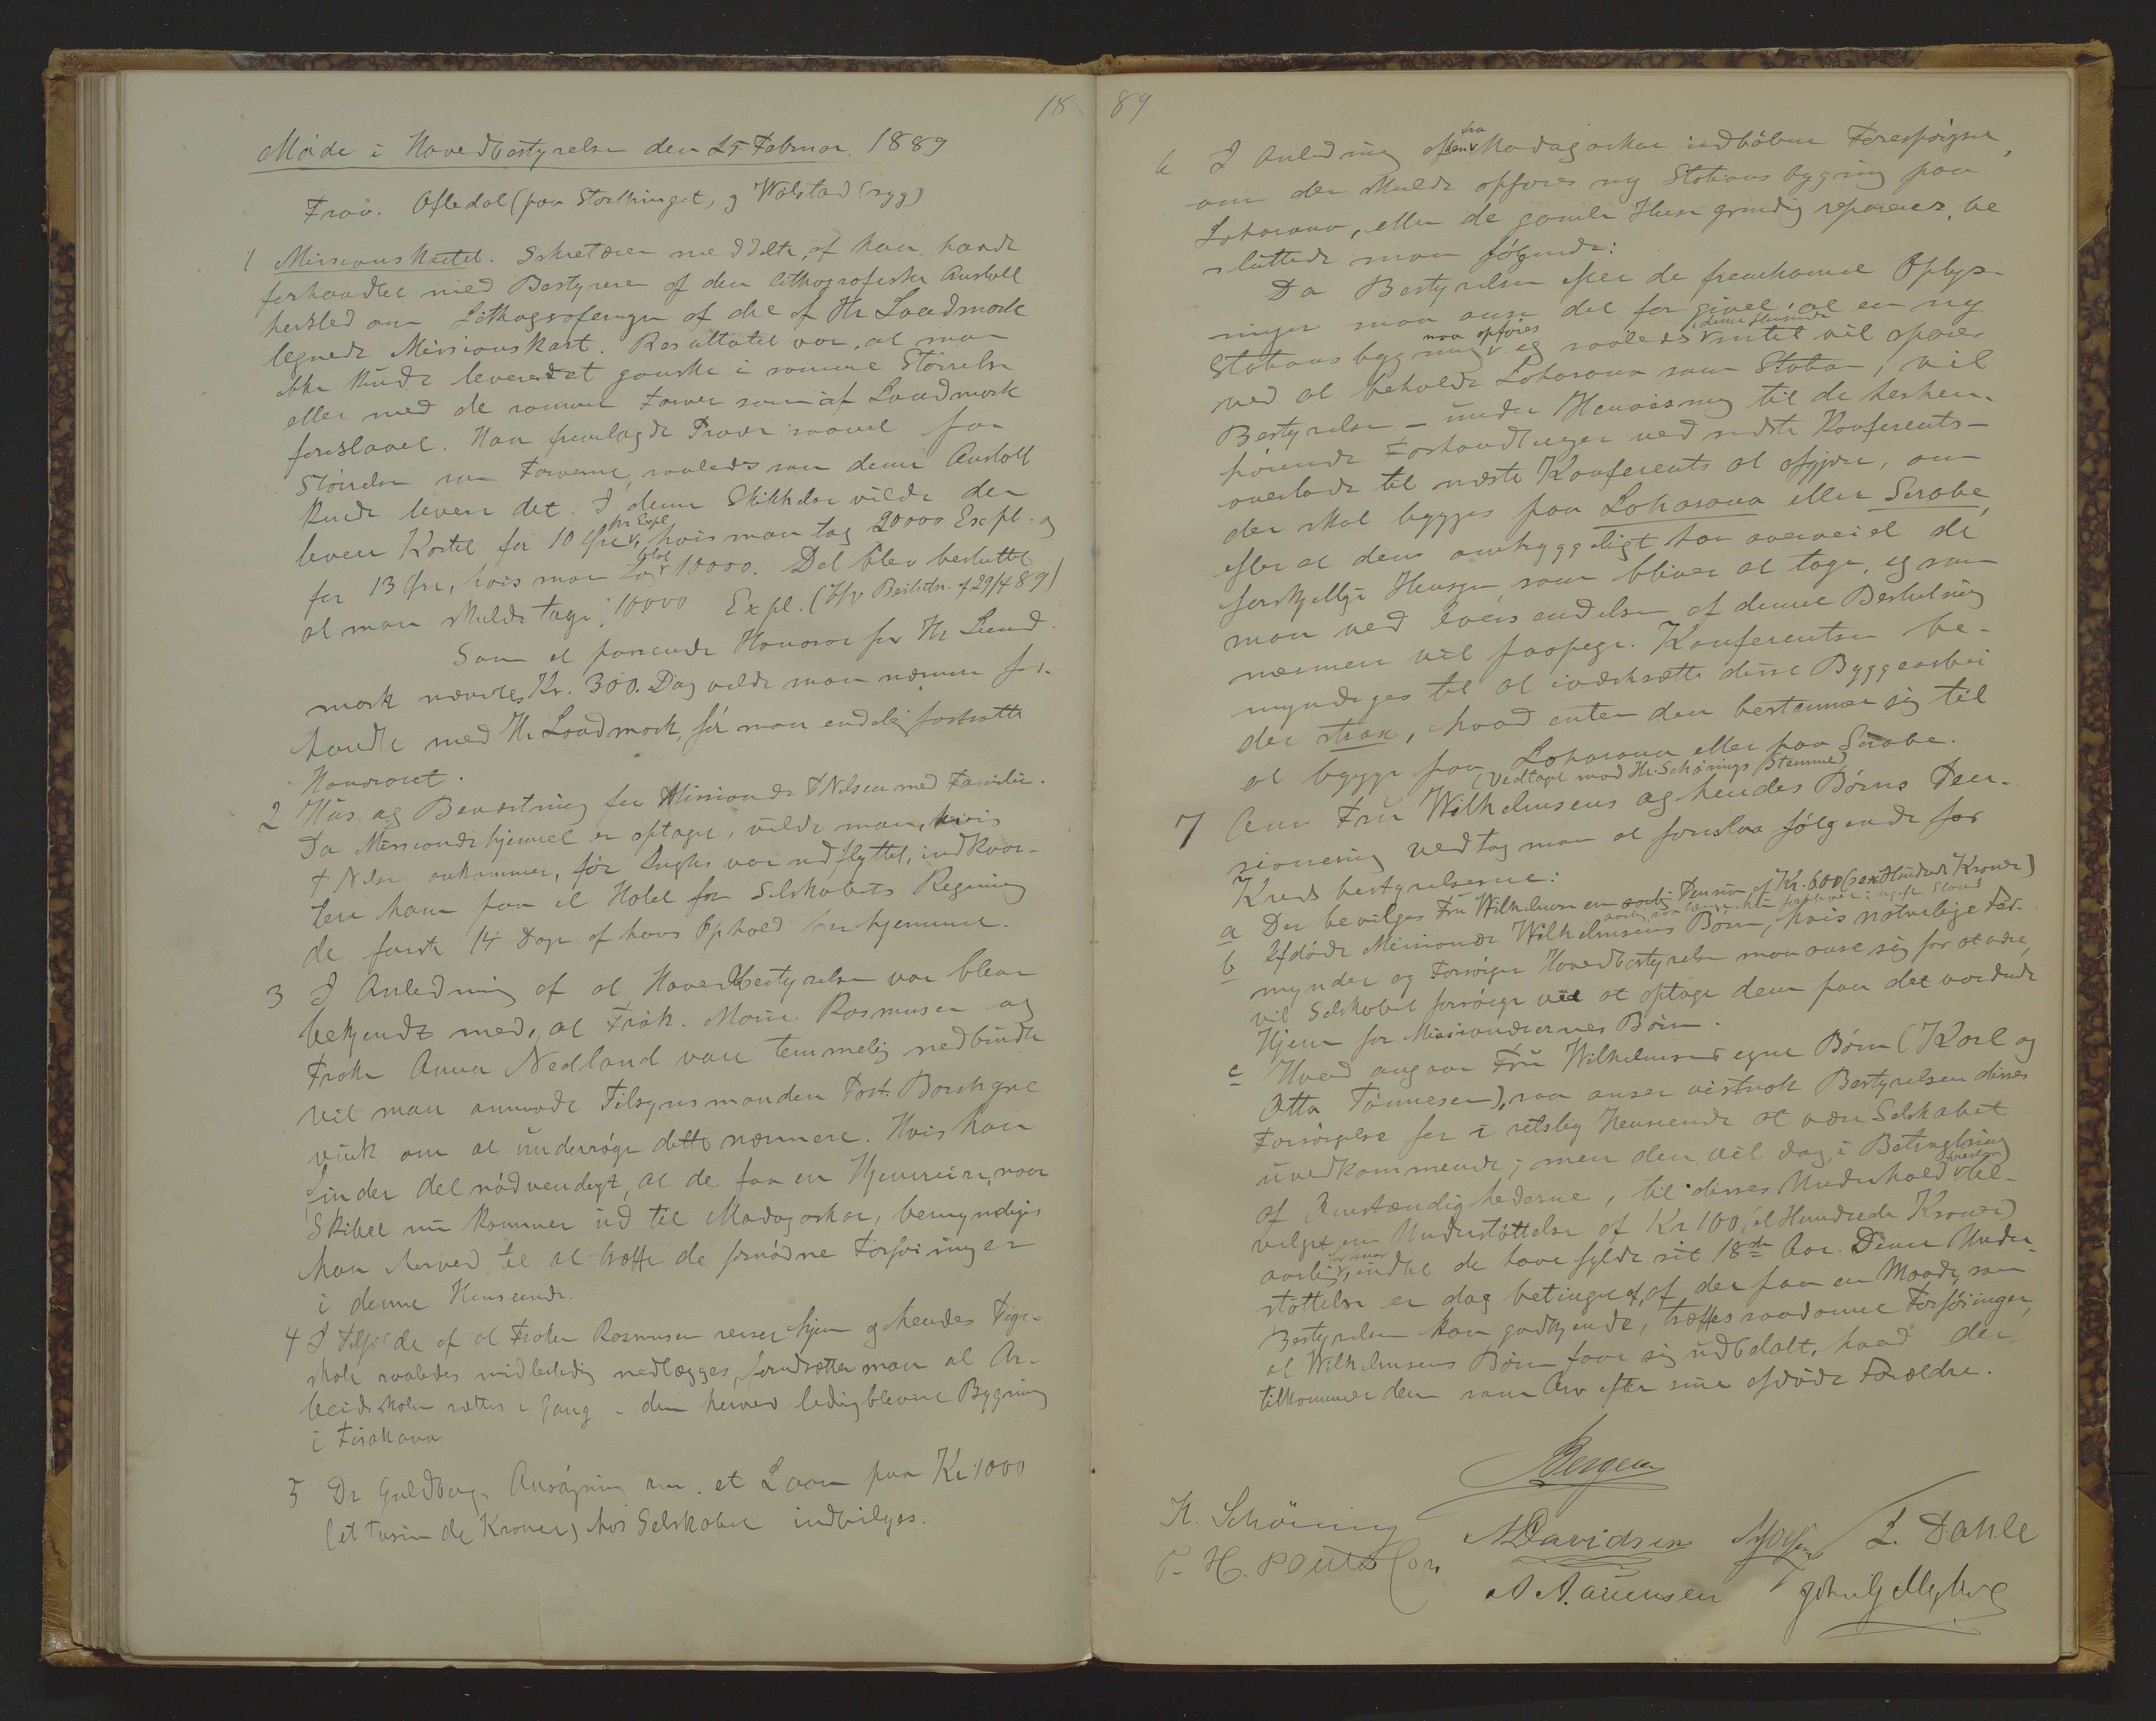 18
Møde i Hovedbestyrelsen den 25 Februar 1889
Frav. Oftedal (paa Storthinget) og Walstad (syg)
1 Missionskartet. Sekretæren meddelte, at han havde
forhandlet med Bestyreren af den lithografiske Anstalt
hersted om Lithograferingen af det af Hr Landmark
tegnede Missionskart. Resultatet var, at man
ikke kunde levere det ganske i samme Størrelse
eller med de samme Farver som af Landmark
foreslaaet. Han fremlagde Prøver saavel paa
Størrelsen som Farverne, saaledes som denne Anstalt
kunde levere det. I denne Skikkelse vilde den
levere Kartet for 10 Øre pr Expl, hvis man tog 20000 Expl. og
for 13 Øre, hvis man tog blot 10000. Det blev besluttet
at man skulde tage 10000 Expl. (Jfr Beslutn. af 29/4 89)
Som et passende Honorar for Hr Land-
mark nævntes Kr. 300. Dog vilde man nærmere for-
handle med Hr Landmark, før man endelig fastsatte
Honoraret.
2 Hus og Beværtning for Missionær Nilsen med Familie.
Da Missionærhjemmet er optaget, vilde man, hvis
Nilsen ankommer, før Inghs var udflyttet, indkvar-
tere ham paa et Hotel for Selskabets Regning
de første 14 Dage af hans Ophold her hjemme.
3 I Anledning af at Hovedbestyrelsen var bleven
bekjendt med, at Frøk. Marie Rasmussen og
Frøken Anna Nedland vare temmelig nedbrudte
vil man anmode Tilsynsmanden Past. Borchgre-
vink om at undersøge dette nærmere. Hvis han
finder det nødvendigt, at de faa en Hjemreise, naar
Skibet nu kommer ud til Madagaskar, bemyndiges
han herved til at træffe de fornødne Forføininger
i denne Henseende.
4 I Tilfælde af at Frøken Rasmussen reiser hjem og hendes Pige-
skole saaledes midlertidig nedlægges, forudsætter man at Ar-
beidsskolen sættes i Gang i den herved ledigblevne Bygning
i Fisakana
5 Dr Guldbergs Ansøgning om et Laan paa Kr 1000
(et Tusinde Kroner) hos Selskabet indvilges.
89
6 I Anledning af den fra Madagaskar indløbne Forespørgsel,
om der skulde opføres ny Stationsbygning paa
Loharano, eller de gamle Huse grundig repareres, be
sluttede man følgende:
Da Bestyrelsen efter de fremkomne Oplys-
ninger maa anse det for givet, at en ny
Stationsbygning maa opføres og saaledes i denne Henseende intet vil spares
ved at beholde Loharano som Station, vil
Bestyrelsen – under Henvisning til de herhen-
hørende Forhandlinger ved sidste Konferents –
overlade til næste Konferents at afgjøre, om
der skal bygges paa Loharano eller Serabe,
efter at den omhyggeligt har overveiet de
forskjellige Hensyn, som bliver at tage, og som
man ved Oversendelsen af denne Beslutning
nærmere vil paapege. Konferentsen be-
myndiges til at iværksætte disse Byggearbei
der strax, hvad enten den bestemmer sig til
at bygge paa Loharano eller paa Serabe.
(Vedtaget mod Hr. Schønings Stemme)
7 Om Fru Wilhelmsens og hendes Børns Pen-
sionering vedtog man at foreslaa følgende for
Kredsbestyrelserne:
a Der bevilges Fru Wilhelmsen en Pension af Kr. 600 (sex Hundrede Kroner)
aarlig, saa længe hun forbliver i ugift Stand
b Afdøde Missionær Wilhelmsens Børn, hvis naturlige For-
mynder og Forsørger Hovedbestyrelsen maa anse sig for at være,
vil Selskabet forsørge ved at optage dem paa det vordende
Hjem for Missionærernes Børn.
c Hvad angaar Fru Wilhelmsens egne Børn (Karl og
Otto Tønnesen), saa anser vistnok Bestyrelsen disses
Forsørgelse for i retslig Henseende at være Selskabet
uvedkommende; men den vil dog, i Betragtning
af Omstændighederne, til disses Underhold foreslaa til-
velget en Understøttelse af Kr 100 (et Hundrede Kroner)
aarlig for hver, indtil de have fyldt sit 18de Aar. Denne Under-
støttelse er dog betinget af, at der paa en Maade, som
Bestyrelsen kan godkjende, træffes saadanne Forføininger,
at Wilhelmsens Børn faar sig udbetalt, hvad der
tilkommer dem som Arv efter sine afdøde Forældre.
Bergen
K. Schöning
A Davidsen
L. Dahle
P. H. Poulsson
A A. auensen
John G Myhre